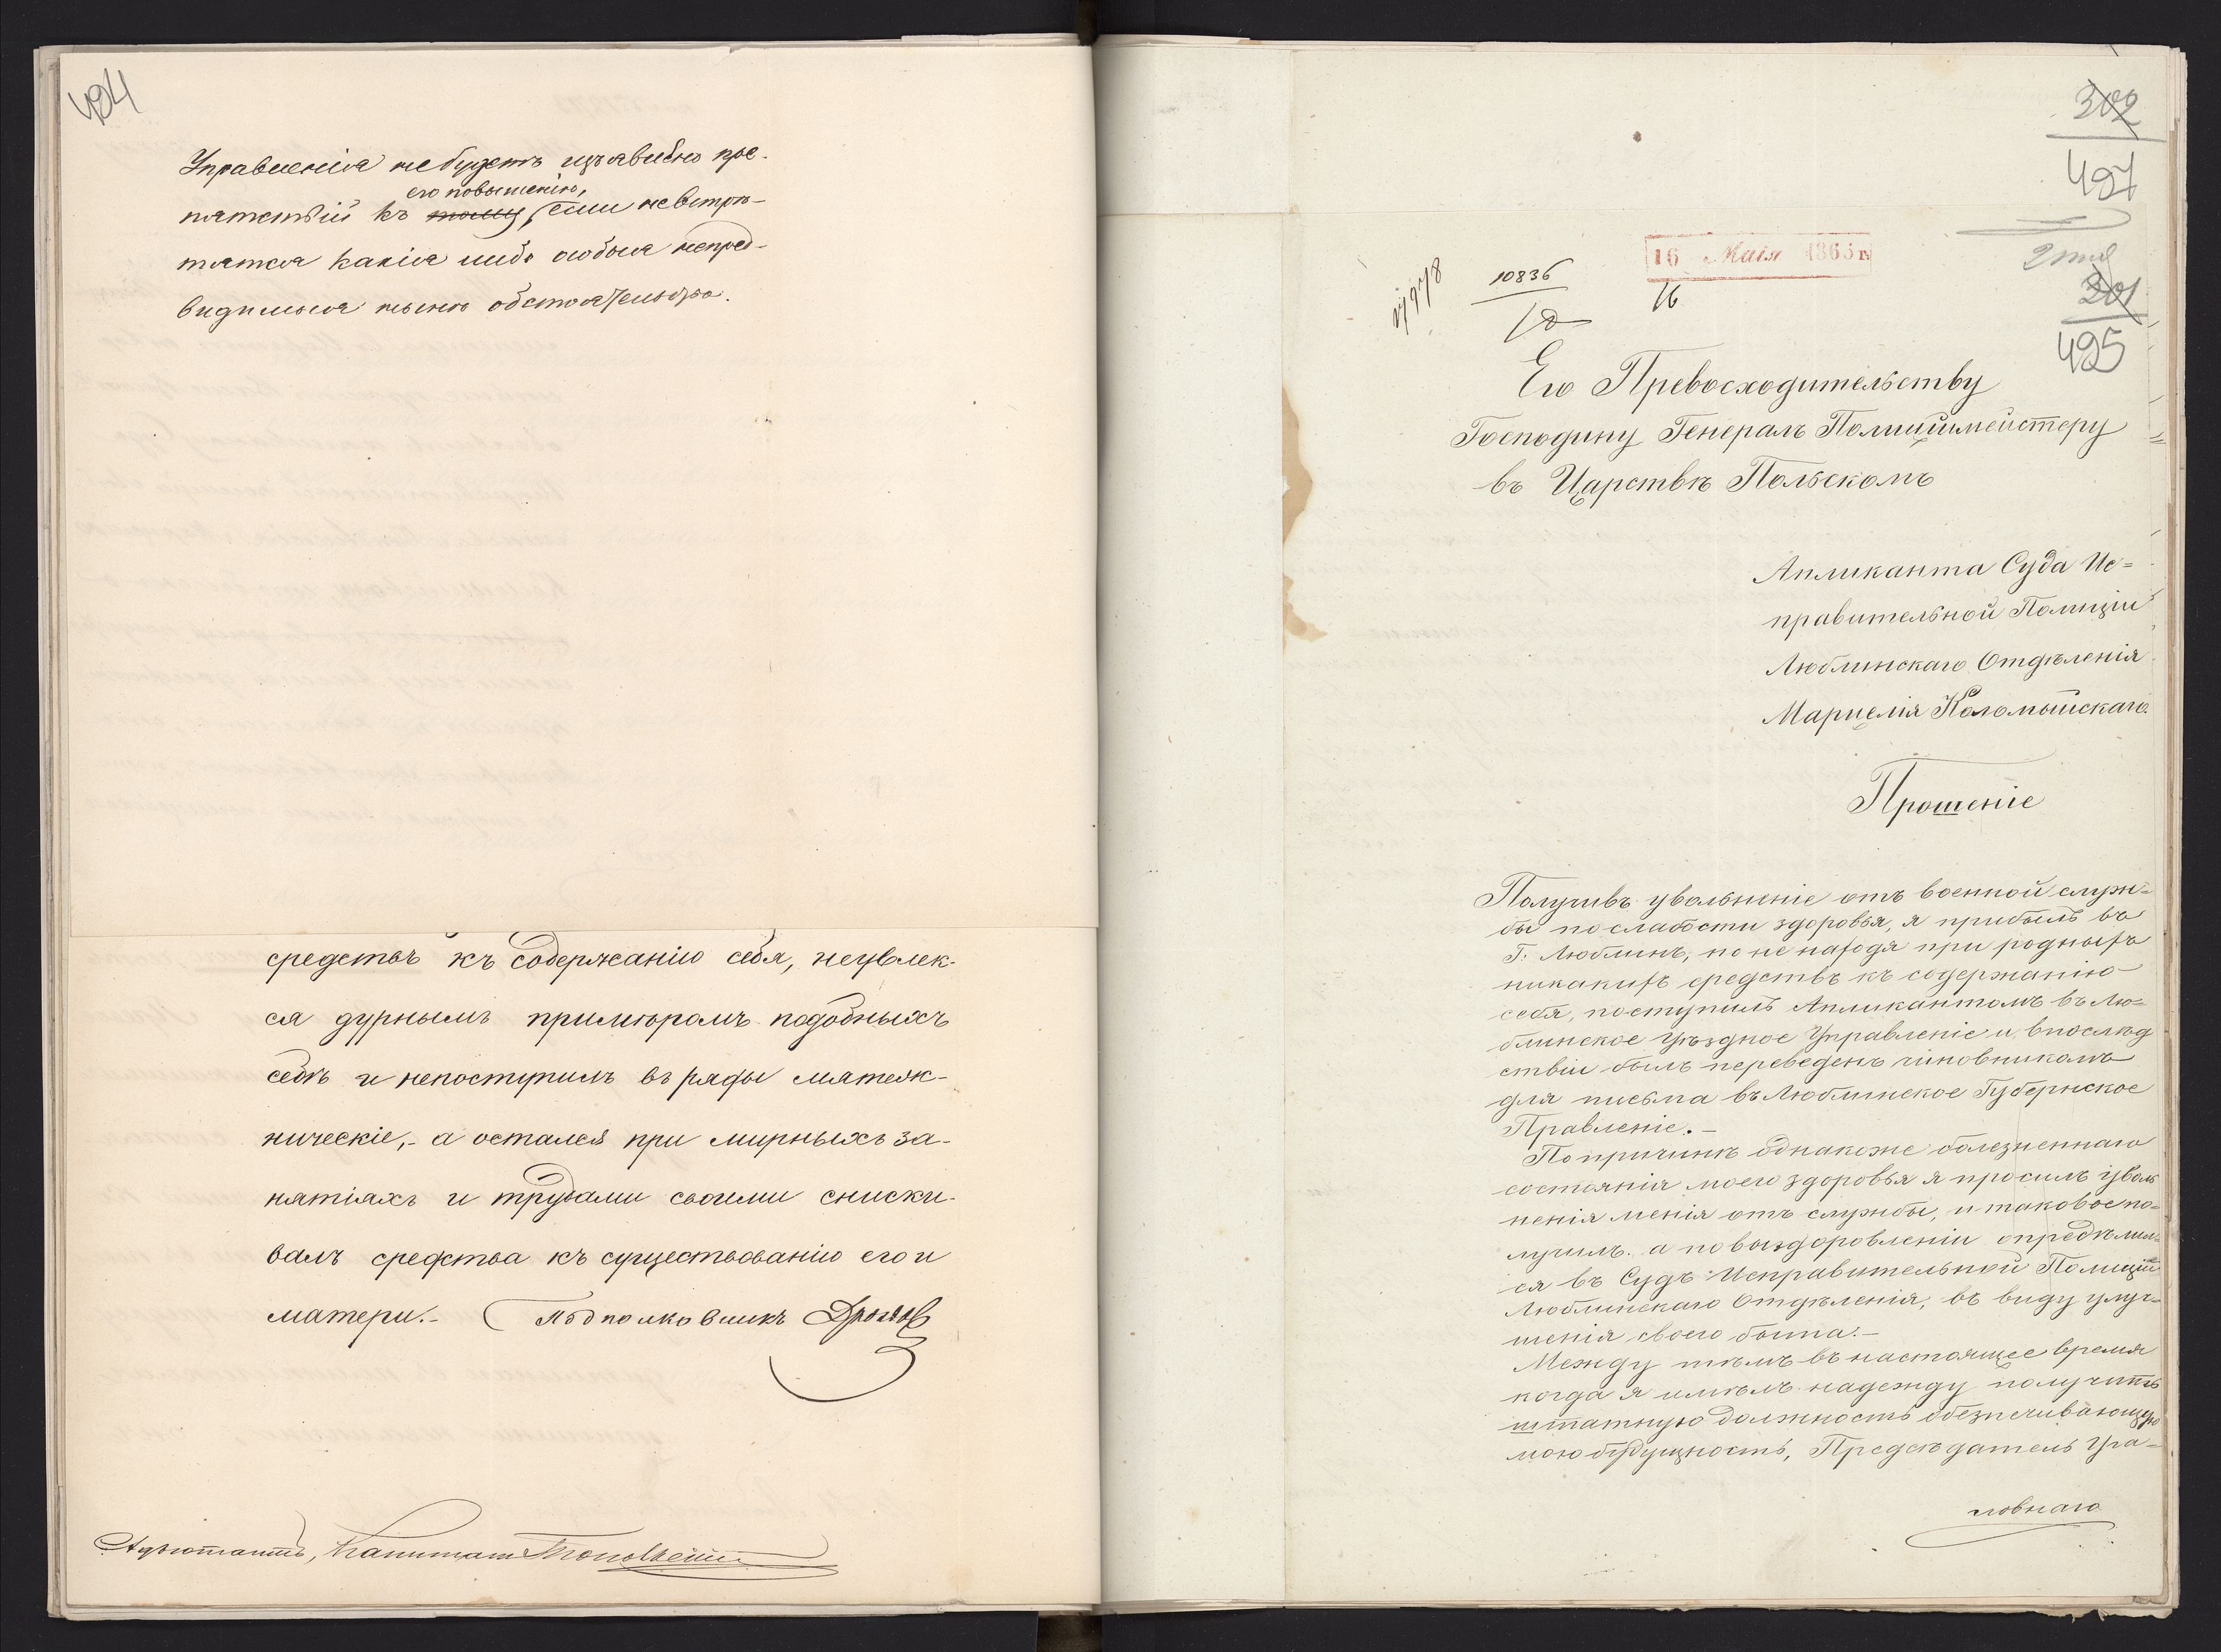 494
Управленія не будетъ изъявлено пре-
его повышенію,
пятствій къ тому, если не встрѣ-
тятся какія либо особыя непред-
видимыя нынѣ обстоятельства.
средствъ къ содержанію себя, неувлек-
ся дурнымъ примѣромъ подобныхъ
себѣ и непоступилъ въ ряды мятеж-
ническіе,- а остался при мирныхъ за-
нятіяхъ и трудами своими сниски-
валъ средства къ существованію его и
матери.- Подполковникъ
Адъютантъ, Капитанъ
302
497
301
495
16 Маія 1865 г.
10836
16
Его Превосходительству
Господину Генералъ Полиціймейстеру
въ Царствѣ Польскомъ
Апликанта Суда Ис=
правительной Полиціи
Люблинскаго Отдѣленія
Марцелія Коломыйскаго.
Прошеніе
Получивъ увольненіе отъ военной служ=
бы по слабости здоровья, я прибылъ въ
Г. Люблинъ, но не находя при родныхъ
никакихъ средствъ къ содержанію
себя, поступилъ Апликантомъ въ Лю=
блинское Уѣздное Управленіе и впослѣд
ствіи былъ переведенъ чиновникомъ
для письма въ Люблинское Губернское
Правленіе.-
По причинѣ однакоже болезненнаго
состоянія моего здоровья я просилъ уволь
ненія менія отъ службы, и таковое по=
лучилъ. а по выздоровленіи опредѣлил
ся въ Судъ Исправительной Полиціи
Люблинскаго Отдѣленія, въ виду улуч=
шенія своего быта.-
Между тѣмъ въ настоящее время
когда я имѣлъ надежду получить
штатную должность обезпечивающую
мою будущность, Предсѣдатель Уго=
ловнаго